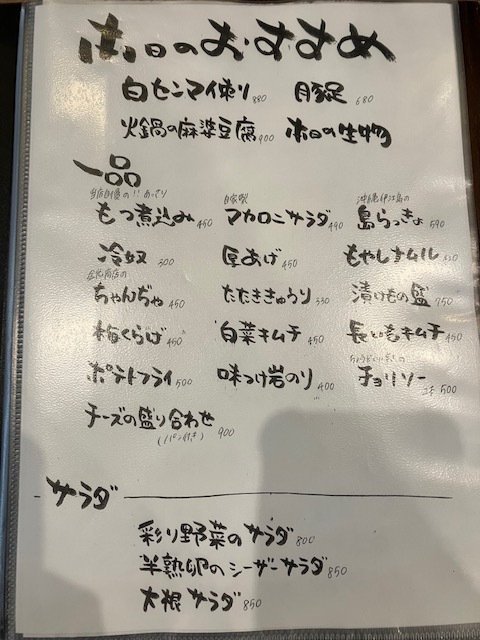 本日のおすすめ
白センマイ刺し 880 豚足 680
火鍋の麻婆豆腐 900 本日の生物
一品
当店自慢の!!あっさり 自家製 沖縄伊江島の
もつ煮込み 450 マカロニサラダ 490 島らっきょ 590
冷奴 300 厚あげ 450 もやしナムル
ちゃんぢゃ 450 たたききゅうり 330 漬けもの盛 750
梅くらげ 450 白菜キムチ 450 長いもキムチ 450
ポテトフライ 500 味つけ岩のり 400 チョリソー 500
チーズの盛り合わせ 900
(パン付き)
サラダ
彩り野菜のサラダ 800
半熟卵のシーザーサラダ 850
大根サラダ 850